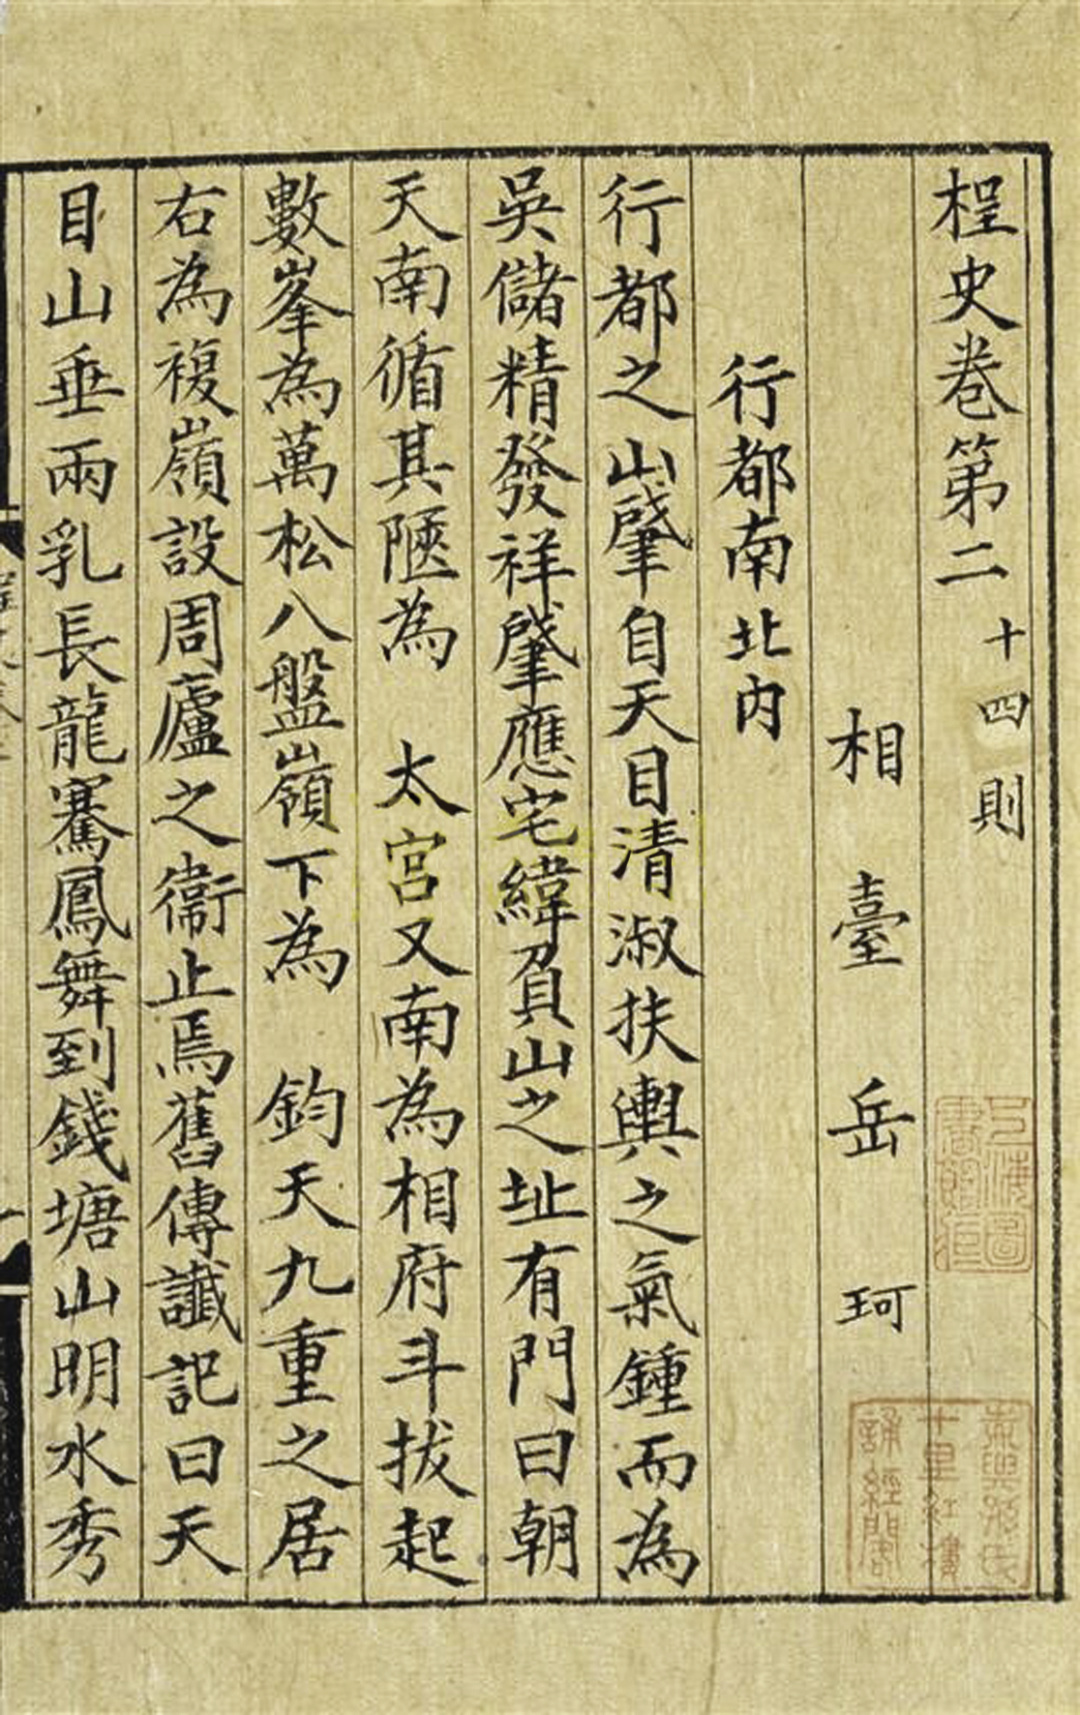 桯史卷第二 十四則
相臺岳珂
行都南北内
行都之山肇自天目清淑扶輿之氣鍾而為
吳儲精發祥肇應宅緯負山之址有門曰朝
天南循其陿為 太宮又南為相府斗拔起
數峯為萬松八盤嶺下為 鈞天九重之居
右為複嶺設周廬之衞止焉舊傳讖記曰天
目山垂兩乳長龍騫鳳舞到錢塘山明水秀